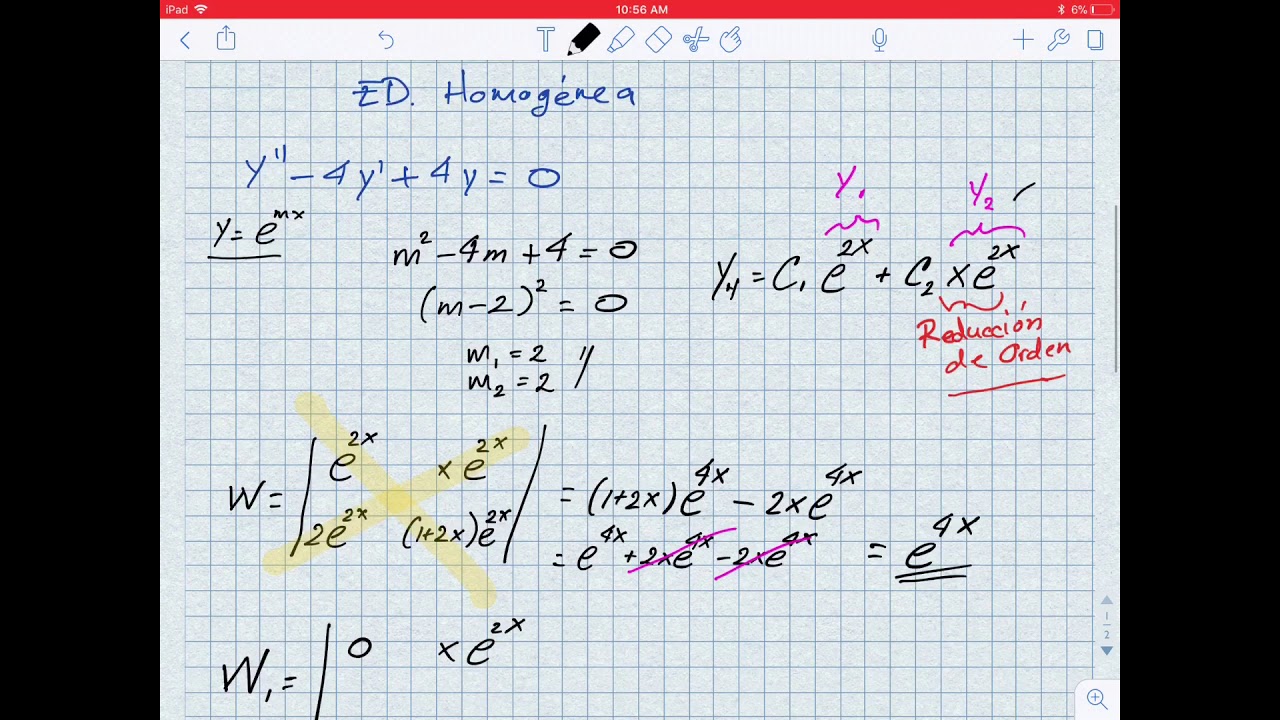 iPad 10:56 AM 6%
ED. Homogénea
y'' - 4y' + 4y = 0
y = e^{mx}
m² - 4m + 4 = 0
(m - 2)² = 0
m₁ = 2
m₂ = 2 //
y₁ y₂
y_H = C₁ e^{2x} + C₂ x e^{2x}
Reducción
de Orden
W = | e^{2x} x e^{2x} |
| 2e^{2x} (1+2x)e^{2x} |
= (1+2x)e^{4x} - 2xe^{4x}
= e^{4x} + 2xe^{4x} - 2xe^{4x} = e^{4x}
W₁ = | 0 x e^{2x}
1
2